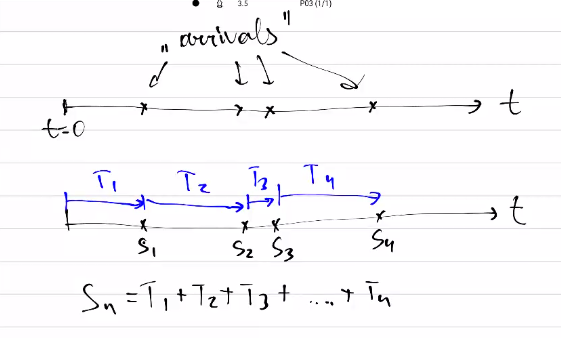 3.5 P03 (1/1)
"arrivals"
t
t=0
T1 T2 T3 T4
t
S1 S2 S3 S4
Sn = T1 + T2 + T3 + .... + Tn